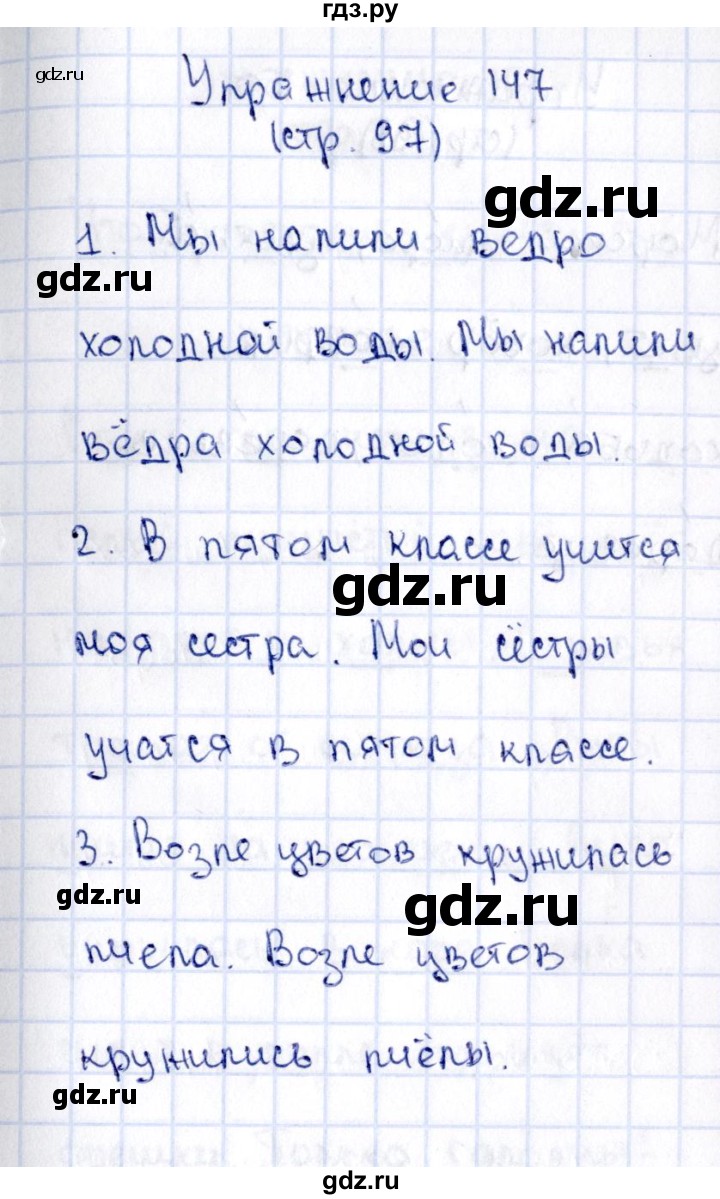 гдз.ру
gdz.ru
Упражнение 147
(стр. 97)
gdz.ru
1. Мы налили ведро
gdz.ru
холодной воды. Мы налили
вёдра холодной воды.
2. В пятом классе учится
gdz.ru
моя сестра. Мои сёстры
учатся в пятом классе.
3. Возле цветов кружилась
gdz.ru
gdz.ru
пчела. Возле цветов
кружились пчёлы.
gdz.ru
gdz.ru